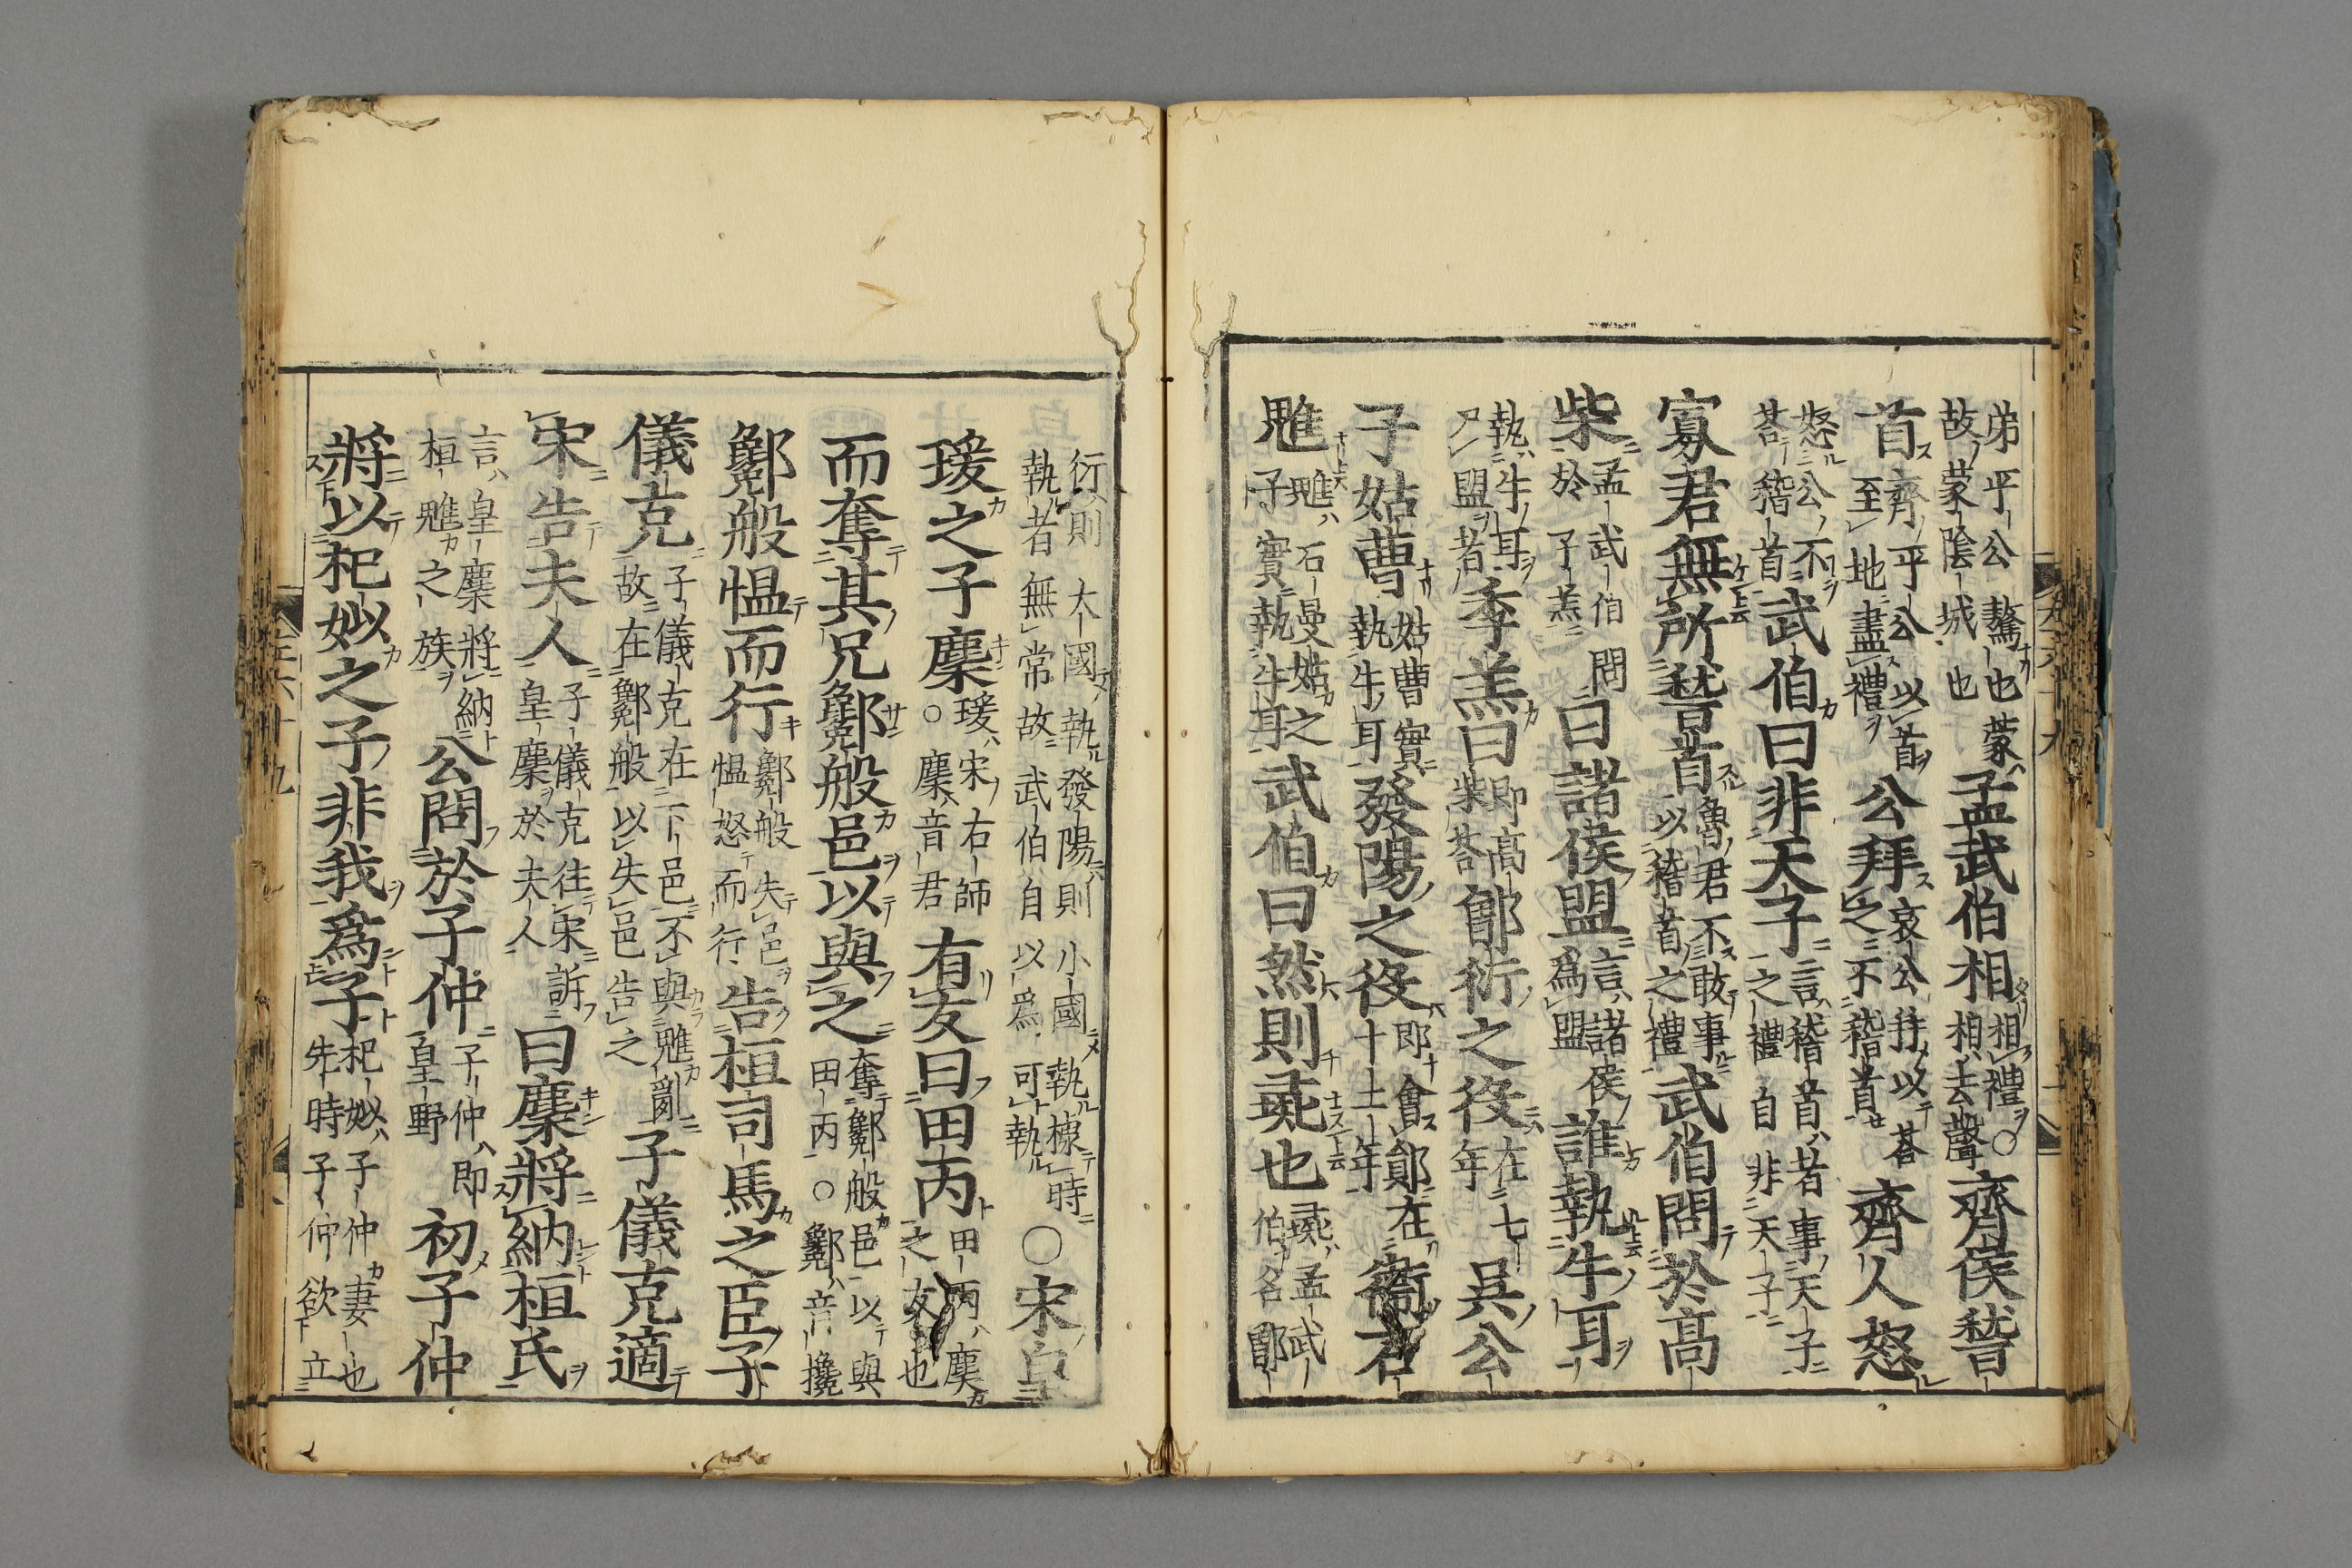 弟平公驁也蒙故蒙陰城也孟武伯相相禮○相去聲齊侯稽
首齊平公以首至地盡禮公拜哀公拜以荅之不稽首齊人怒
怒公不荅稽首武伯曰非天子言稽首者事天子之禮自非天子
寡君無所稽首魯君不敢事以稽首之禮武伯問於高
柴孟武伯問於子羔曰諸侯盟言諸侯爲盟誰執牛耳
執牛耳尸盟者季羔曰即高柴荅鄫衍之役在七年吳公
子姑曹姑曹實執牛耳發陽之役即會鄖在十二年衛石
魋魋石曼姑之子實執牛耳武伯曰然則彘也彘孟武伯名鄫
衍則大國執發陽則小國執據時執者無常故武伯自以爲可執○宋皇
瑗之子麇瑗宋右師○麇音君有友曰田丙田丙麇之友也
而奪其兄酁般邑以與之奪酁般邑以與田丙○酁音攙
酁般愠而行酁般失邑愠怒而行告桓司馬之臣子
儀克子儀克在下邑不與魋亂故在酁般以失邑告之子儀克適
宋告夫人子儀克往宋訴皇麇於夫人曰麇將納桓氏
言皇麇將納桓魋之族公問於子仲子仲即皇野初子仲
將以杞姒之子非我爲子杞姒子仲妻也先時子仲欲立